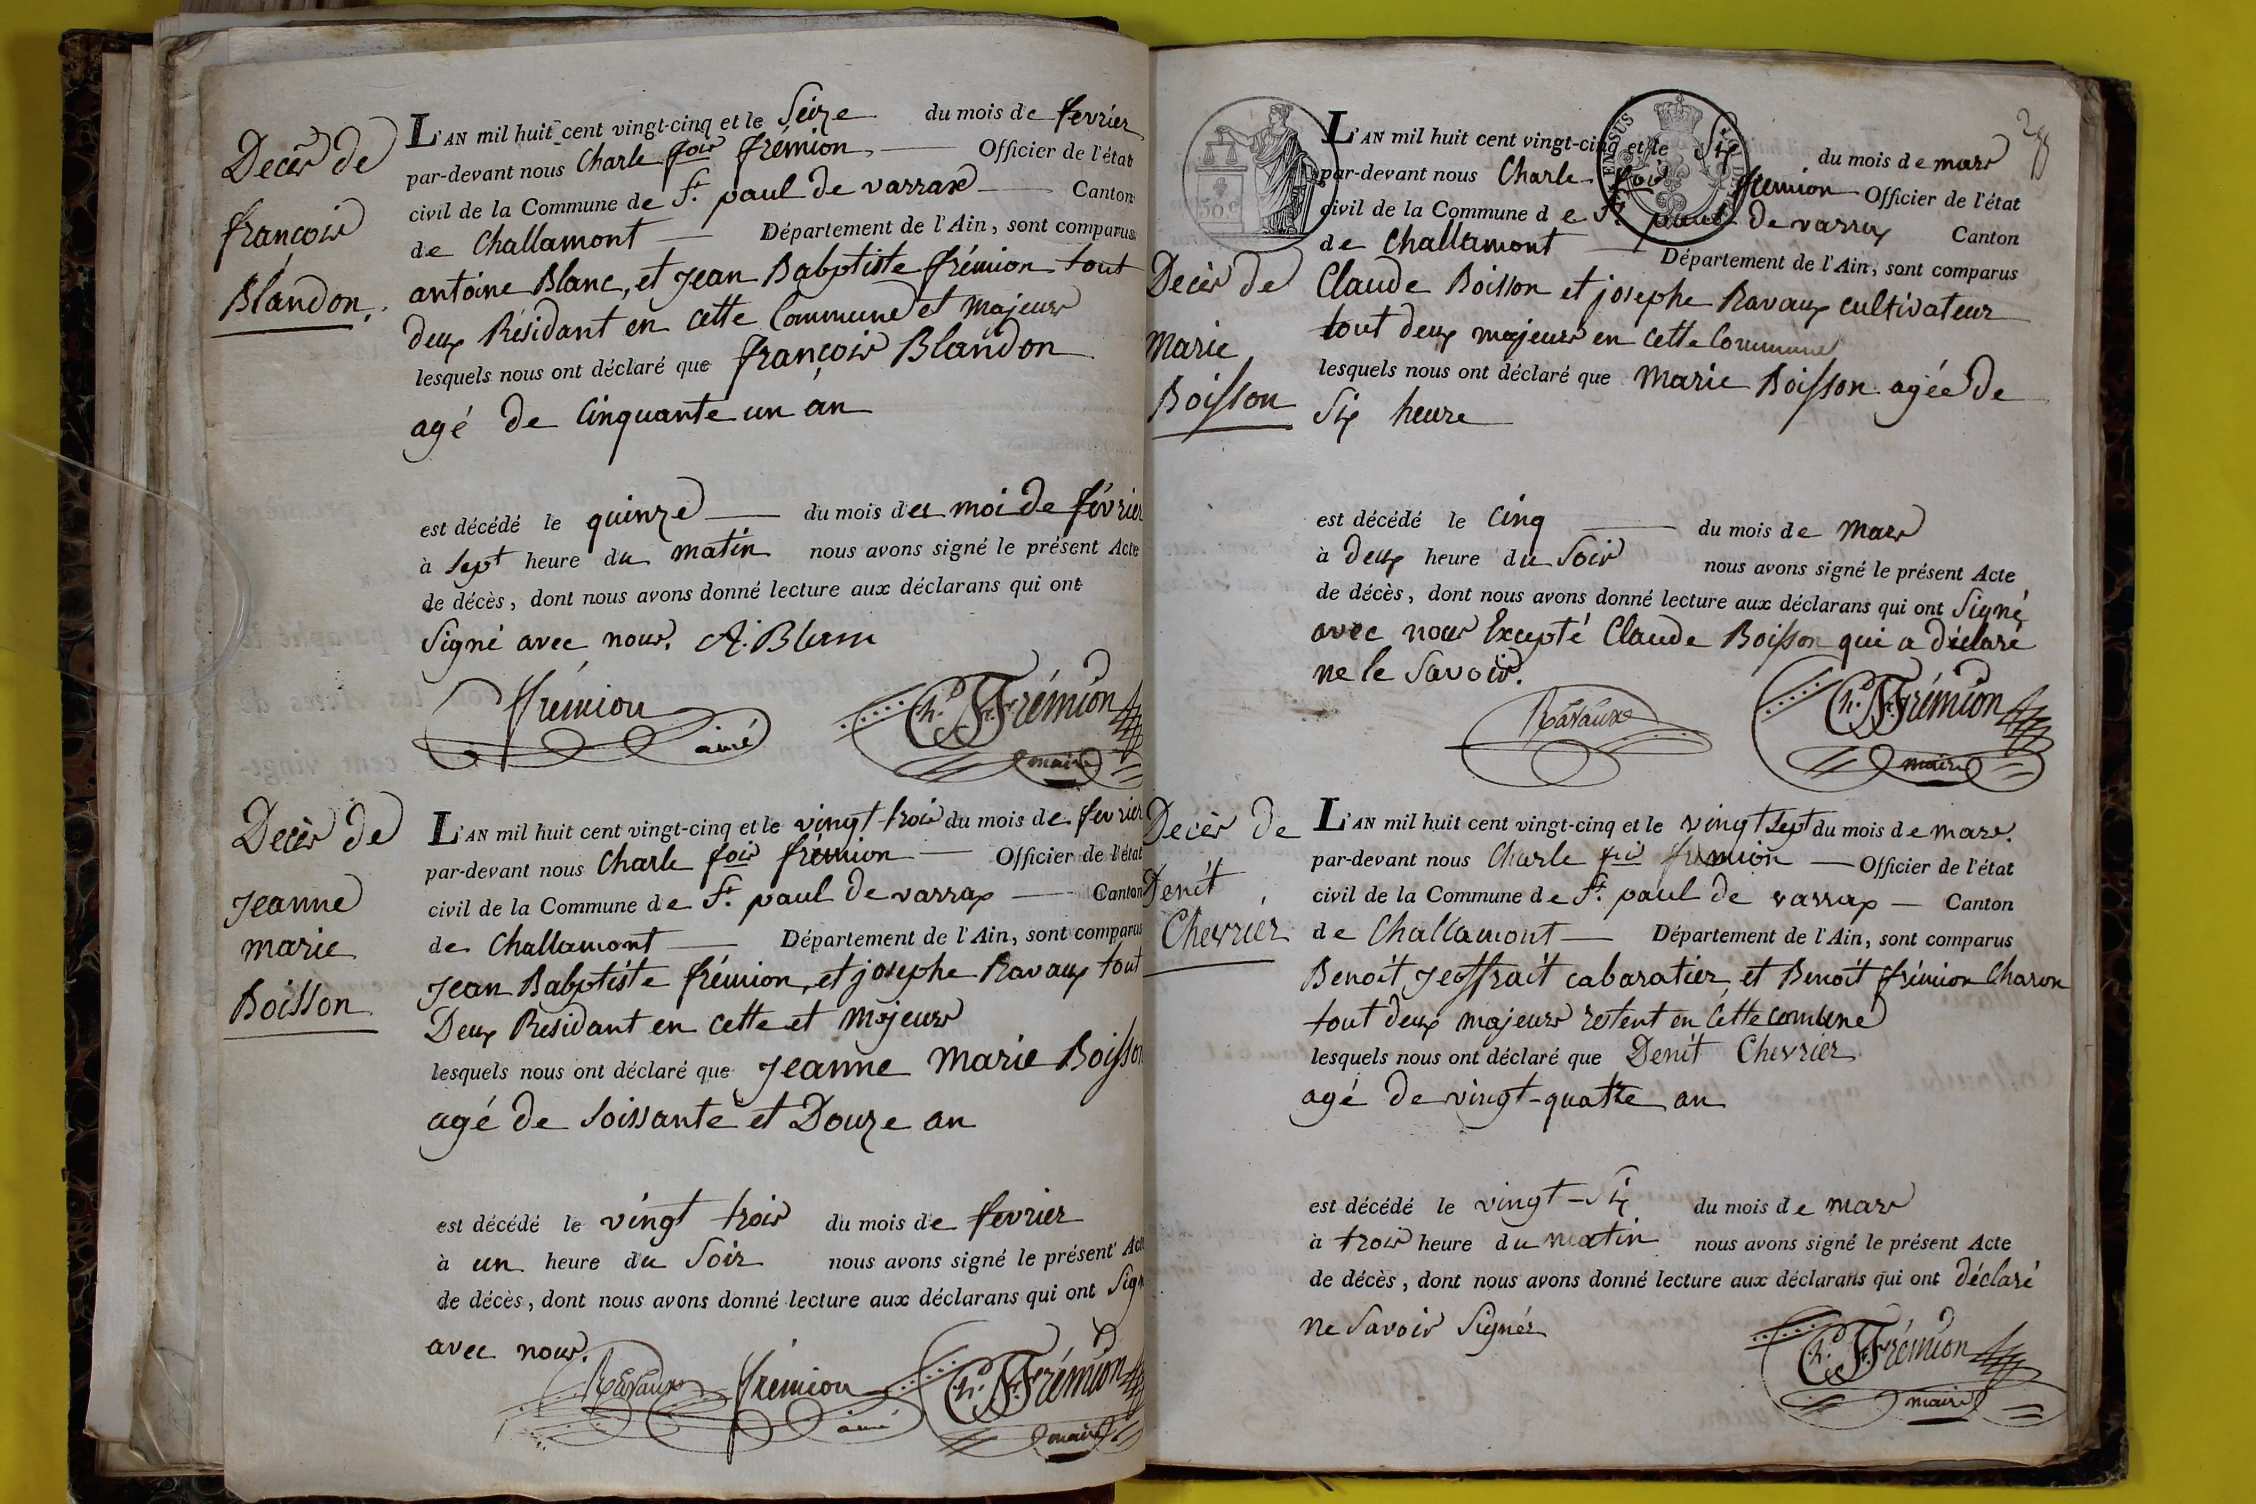 Decès de
françois
Blandon.
L'AN mil huit cent vingt-cinq et le Seize du mois de fevrier
par-devant nous Charle fois frémion Officier de l'état
civil de la Commune de St. paul de varrax Canton
de Challamont Département de l'Ain, sont comparus
antoine Blanc, et Jean Babptiste frémion tout
deux Résidant en cette Commune et Majeurs
lesquels nous ont déclaré que françois Blandon
agé de Cinquante un an
est décédé le quinze du mois deu moi de février
à sept heure du matin nous avons signé le présent Acte
de décès, dont nous avons donné lecture aux déclarans qui ont
Signé avec nous. A. Blanc
frémion ainé Ch. F. Frémion
maire
Decès de
Jeanne
marie
Boisson
L'AN mil huit cent vingt-cinq et le vingt trois du mois de fevrier
par-devant nous Charle fois frémion Officier de l'état
civil de la Commune de St. paul de varrax Canton
de Challamont Département de l'Ain, sont comparus
Jean Babptiste frémion, et josephe Ravaux tout
Deux Residant en cette et Majeurs
lesquels nous ont déclaré que Jeanne Marie Boisson
agé de Soissante et Douze an
est décédé le vingt trois du mois de fevrier
à un heure du Soir nous avons signé le présent Acte
de décès, dont nous avons donné lecture aux déclarans qui ont Sign
avec nous.
Ravaux frémion ainé Ch. F. Frémion
maire
28
50 c
Decès de
Marie
Boisson
L'AN mil huit cent vingt-cinq et le Six du mois de mars
par-devant nous Charle fois fremion Officier de l'état
civil de la Commune de St paul de varrax Canton
de Challamont Département de l'Ain, sont comparus
Claude Boisson et josephe Ravaux cultivateur
tout deux majeurs en cette Commune
lesquels nous ont déclaré que Marie Boisson agée de
Six heure
est décédé le Cinq du mois de Mars
à deux heure du Soir nous avons signé le présent Acte
de décès, dont nous avons donné lecture aux déclarans qui ont Signé
avec nous Excepté Claude Boisson qui a déclaré
ne le Savoir.
Ravaux Ch. F. Frémion
maire
Decès de
Denit
Chevrier
L'AN mil huit cent vingt-cinq et le vingt Sept du mois de mars.
par-devant nous Charle fois frémion Officier de l'état
civil de la Commune de St. paul de varrax Canton
de Challamont Département de l'Ain, sont comparus
Benoit Jeoffrait cabaratier, et Benoit frémion Charon
tout deux majeurs restent en Cette comune
lesquels nous ont déclaré que Denit Chevrier
agé de vingt-quatre an
est décédé le vingt-Six du mois de mars
à trois heure du matin nous avons signé le présent Acte
de décès, dont nous avons donné lecture aux déclarans qui ont déclaré
ne Savoir Signér
Ch. F. Frémion
maire